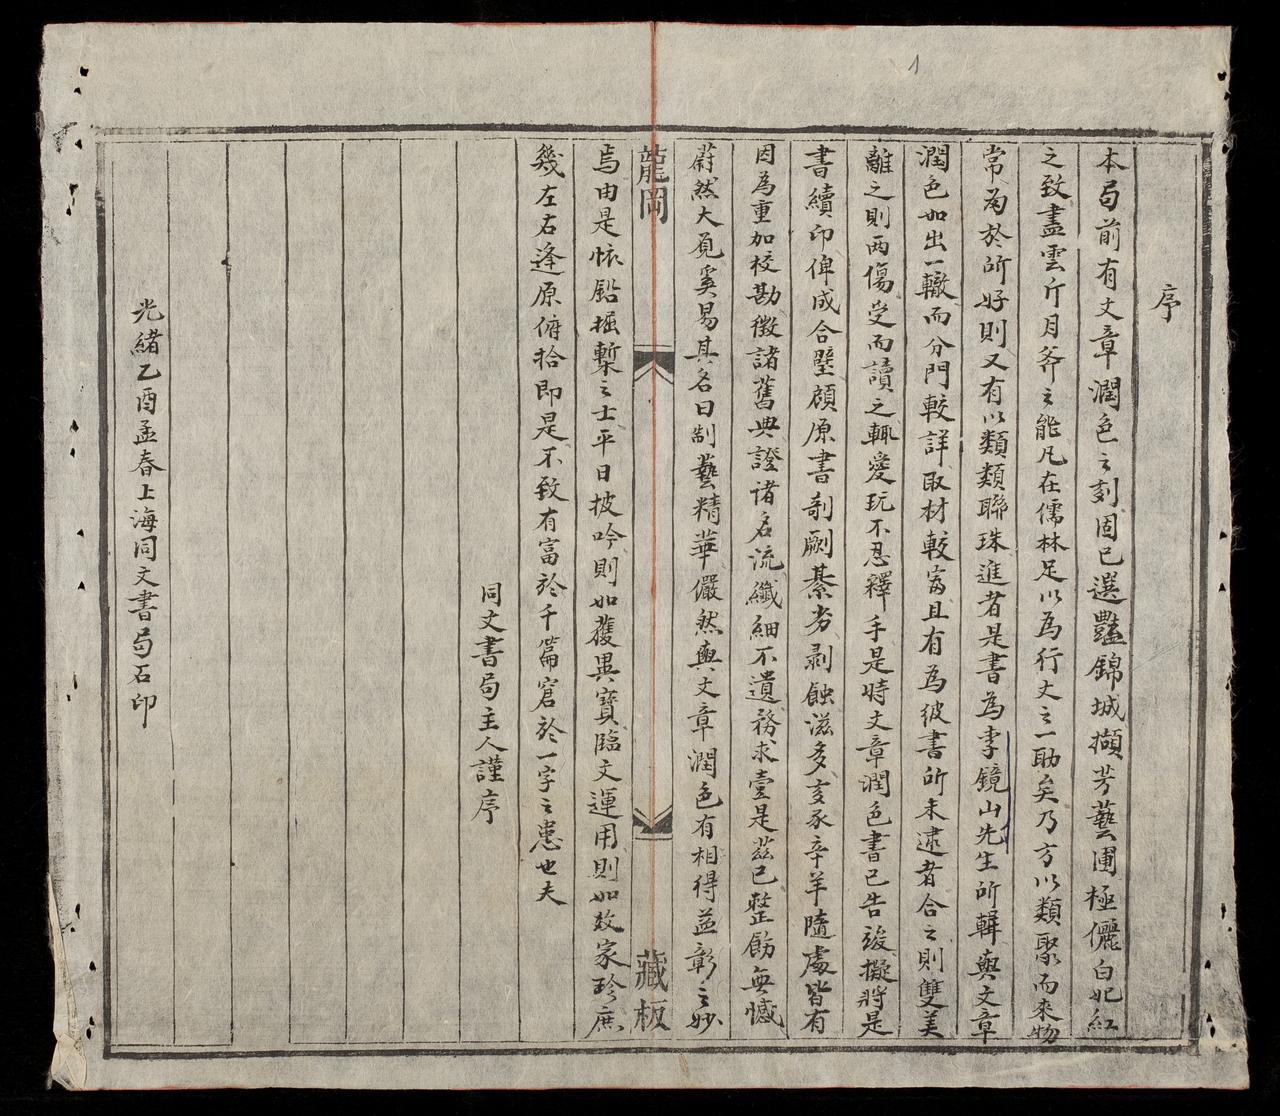 1
序
本局前有文章潤色之刻固已選豔錦城擷芳藝圃極儷白妃紅
之致盡雲斤月斧之能凡在儒林足以為行文之一助矣乃方以類聚而來物
常為於所好則又有以類類聯珠進者是書為李鏡山先生所輯與文章
潤色如出一轍而分門較詳取材較富且有為彼書所未逮者合之則雙美
離之則兩傷受而讀之輒愛玩不忍釋手是時文章潤色書已告竣擬將是
書續印俾成合壁顧原書剞劂綦劣剥蝕滋多亥豕辛羊隨處皆有
因為重加校勘徵諸舊典證诸名流纖細不遺務求壹是茲已整飭無憾
蔚然大觅奚易其名曰制藝精華儼然與文章潤色有相得益彰之妙
龍岡
藏板
焉由是懷鉛握槧之士平日披吟則如獲異寶臨文運用則如数家珍庶
幾左右逢原俯拾即是不致有富於千篇窘於一字之患也夫
同文書局主人謹序
光緒乙酉孟春上海同文書局石印